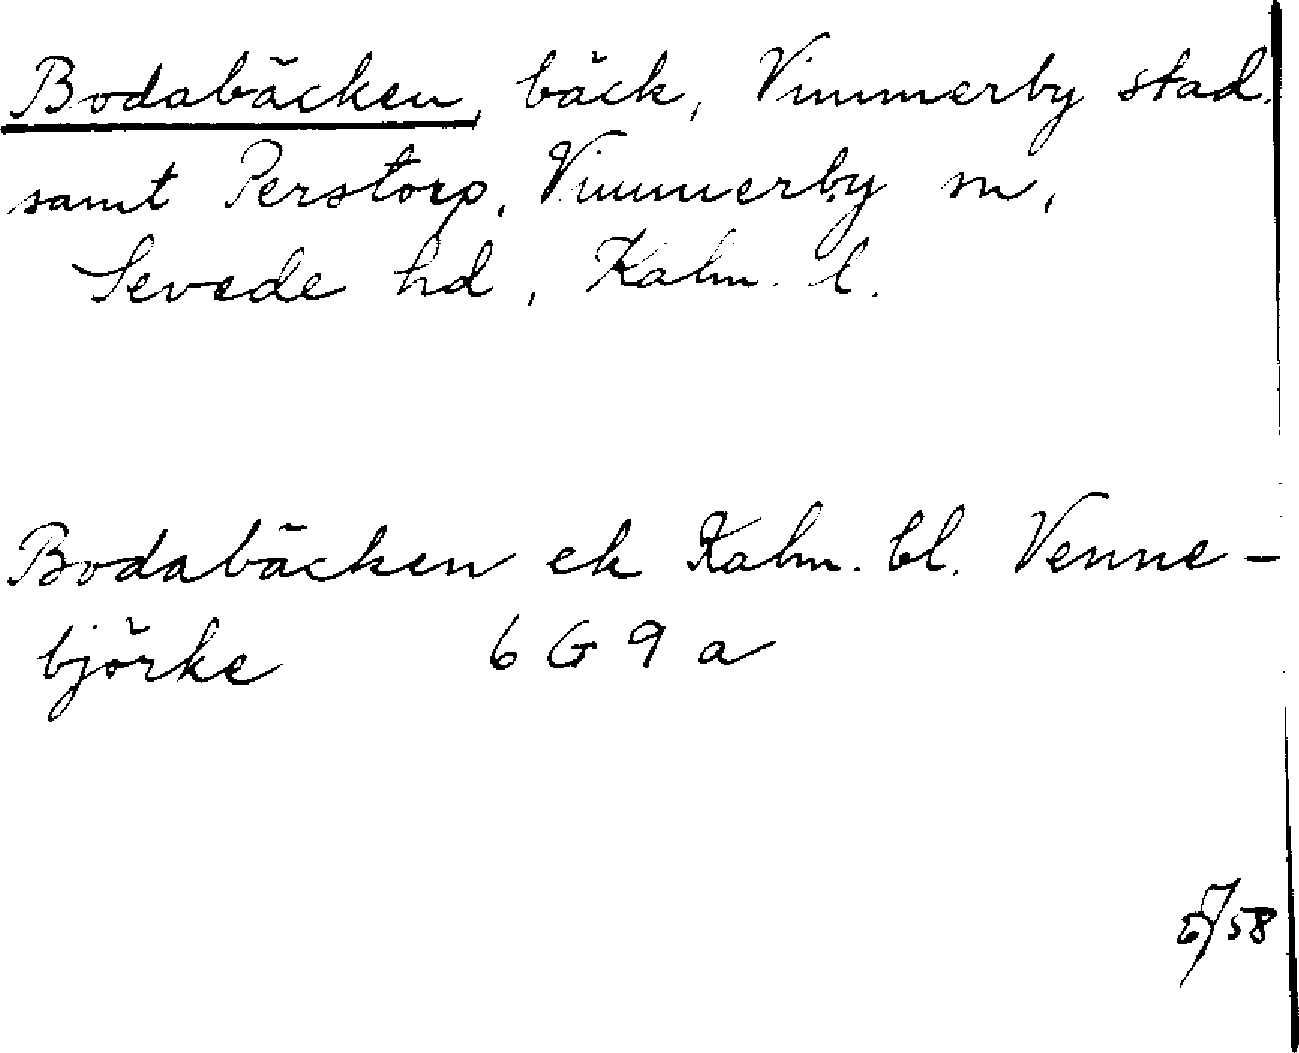 Bodabäcken, bäck, Vimmerby stad.
samt Perstorp, Vimmerby sn,
Sevede hd, Kalm. l.
Bodabäcken ek Kalm. bl. Venne-
björke 6 G 9 a
58